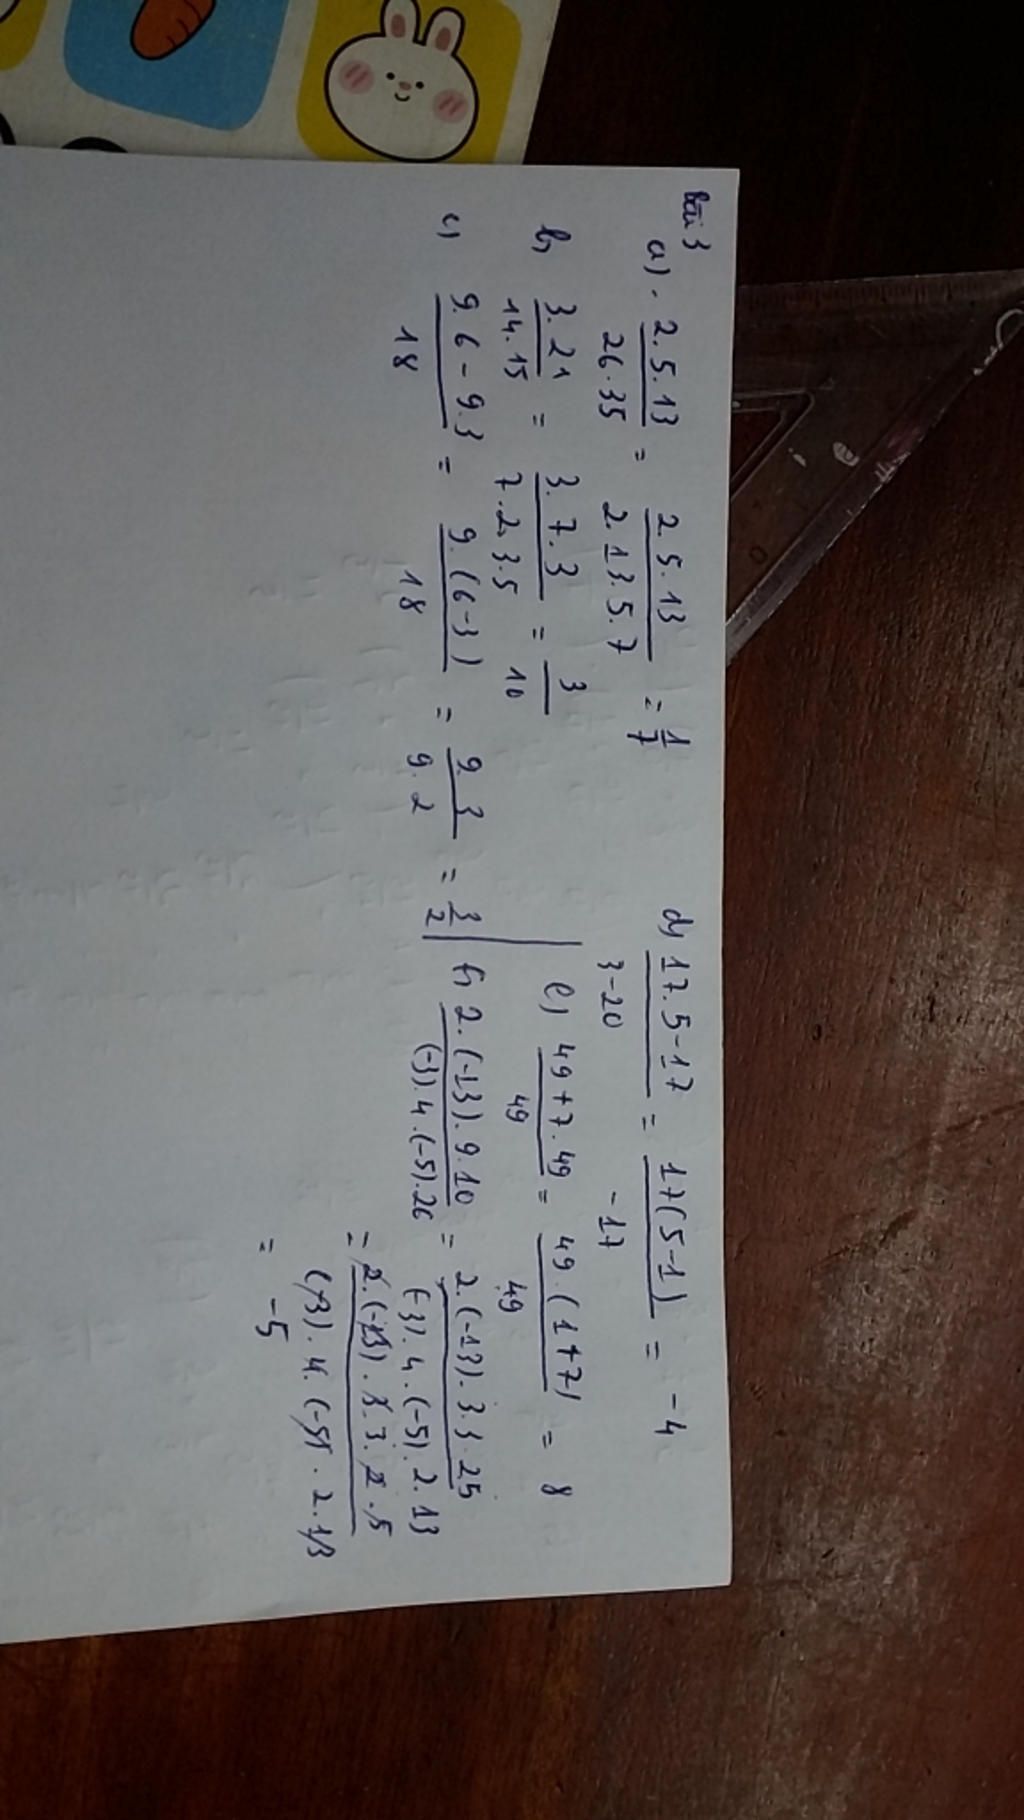 Bài 3
a) . 2.5.13 / 26.35 = 2.5.13 / 2.13.5.7 = 1/7
b) 3.21 / 14.15 = 3.7.3 / 7.2.3.5 = 3/10
c) 9.6-9.3 / 18 = 9.(6-3) / 18 = 9.3 / 9.2 = 3/2
d) 17.5-17 / 3-20 = 17(5-1) / -17 = -4
e) 49+7.49 / 49 = 49.(1+7) / 49 = 8
f) 2.(-13).9.10 / (-3).4.(-5).26 = 2.(-13).3.3.25 / (-3).4.(-5).2.13
= 2.(-13).3.3.2.5 / (-3).4.(-5).2.13
= -5